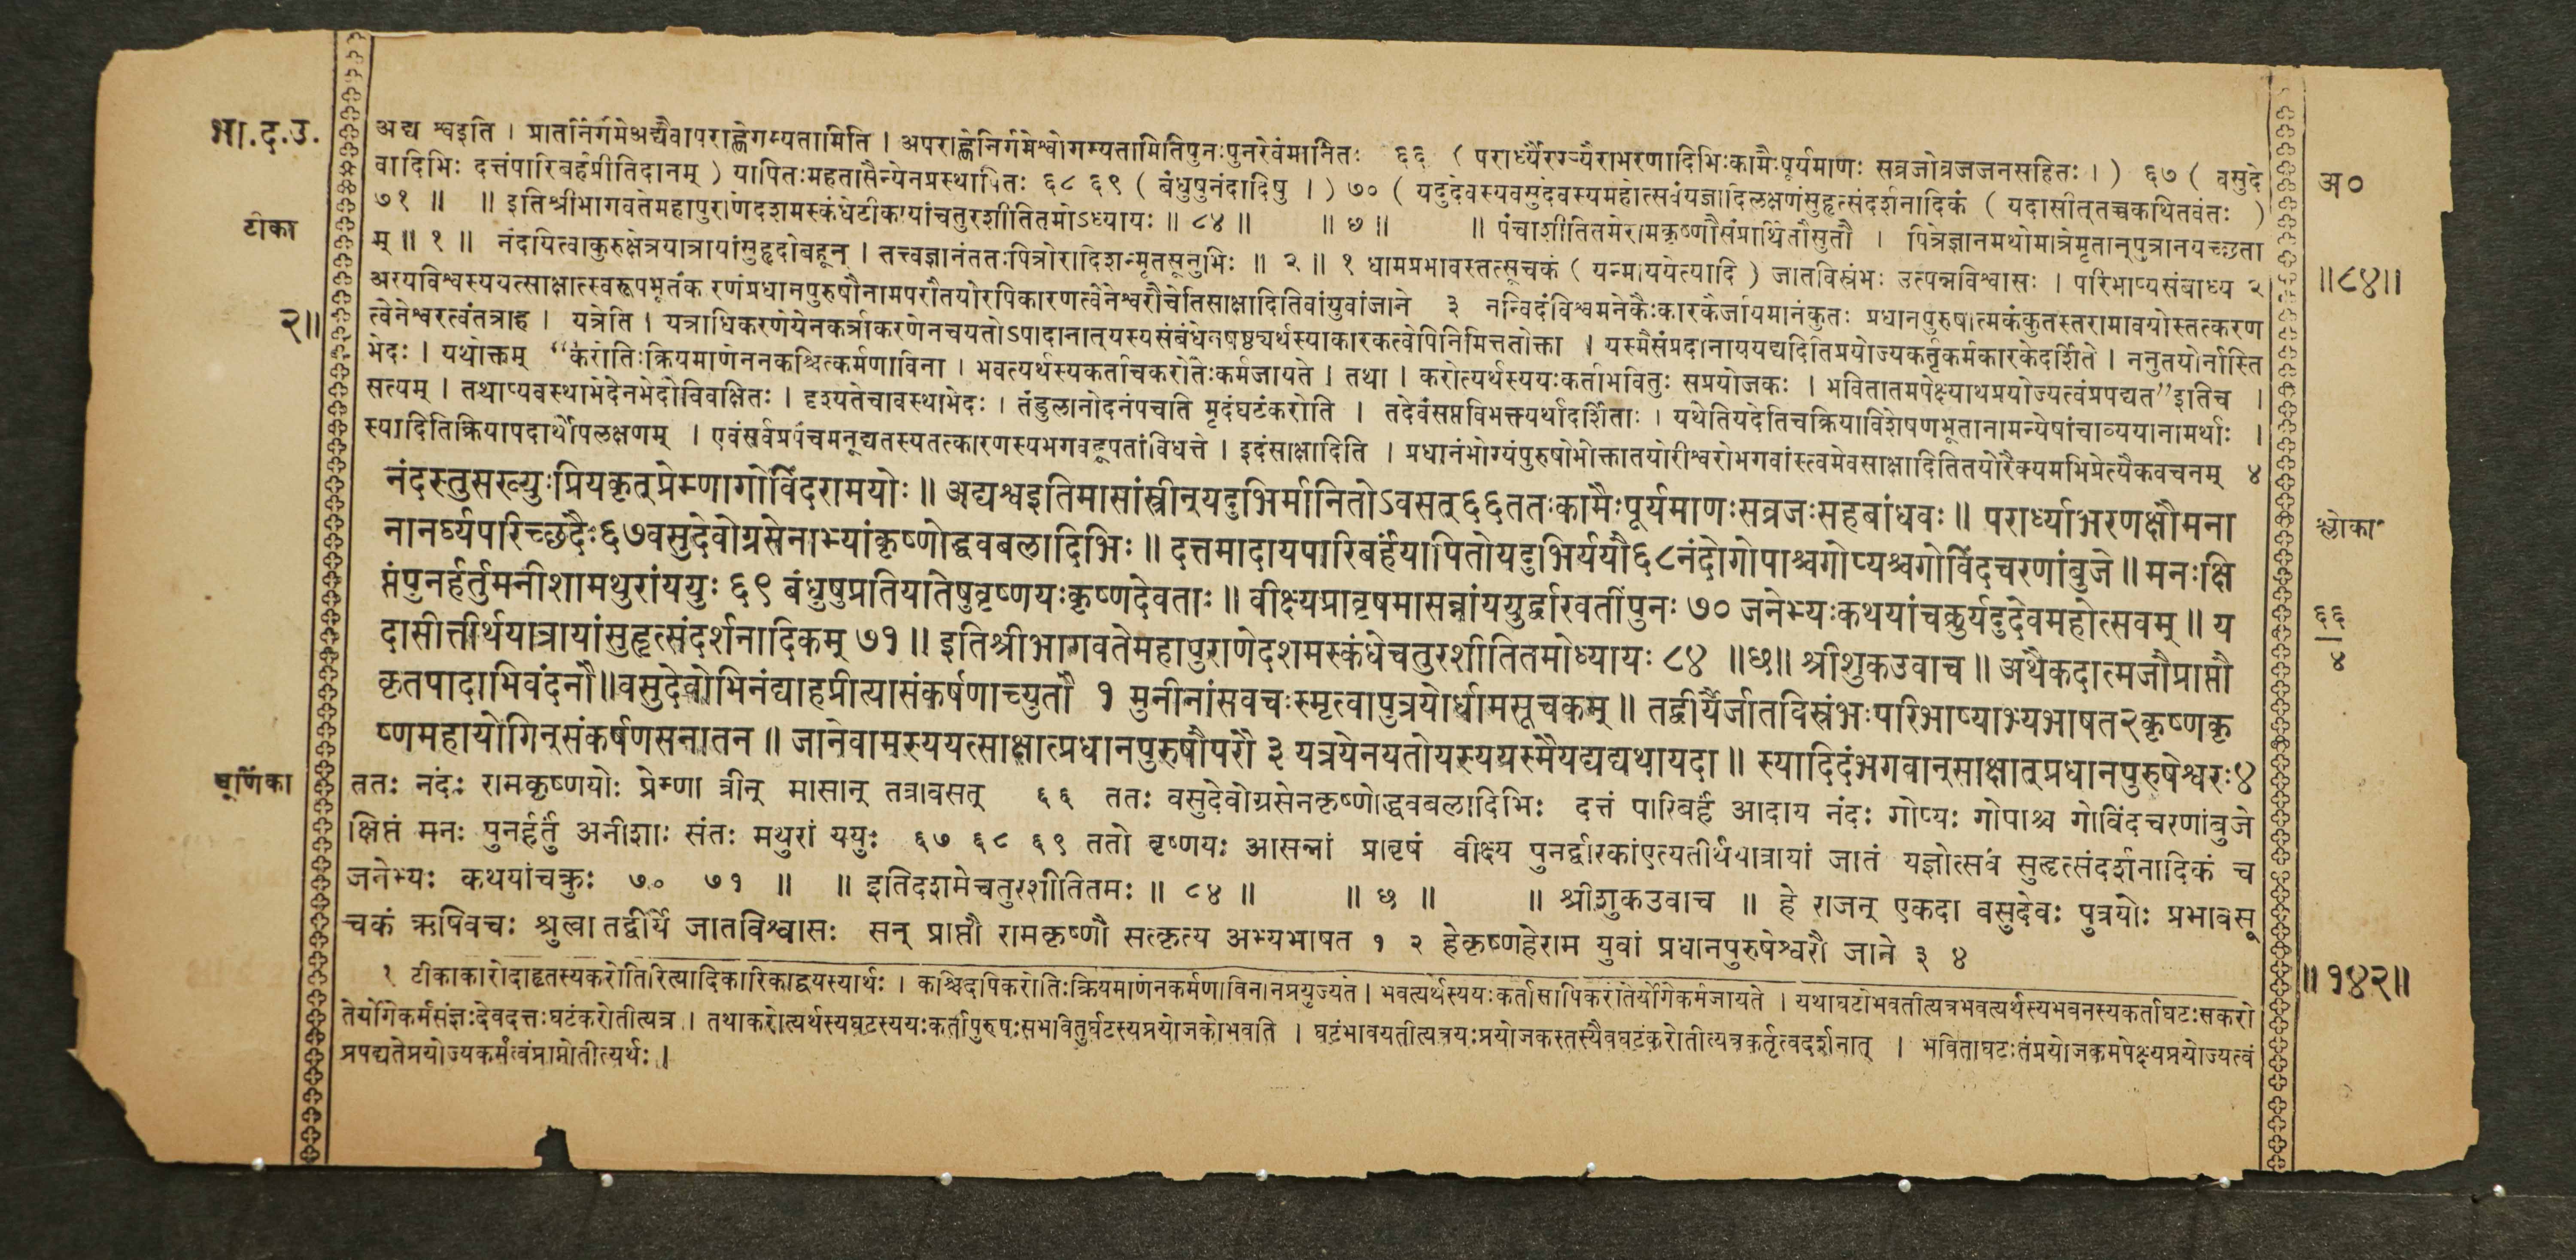 भा.द.उ.
अद्य श्वइति । प्रातर्निर्गमेअद्यैवापराह्णेगम्यतामिति । अपराह्णेनिर्गमेश्वोगम्यतामितिपुनःपुनरेवंमानितः ६६ ( परार्ध्यैरग्र्यैराभरणादिभिःकामैःपूर्यमाणः सव्रजोव्रजजनसहितः । ) ६७ ( वसुदे
वादिभिः दत्तंपारिबर्हंप्रीतिदानम् ) यापितःमहतासैन्येनप्रस्थापितः ६८ ६९ ( बंधुषुनंदादिषु । ) ७० ( यदुदेवस्यवसुदेवस्यमहोत्सवंयज्ञादिलक्षणंसुहृत्संदर्शनादिकं ( यदासीत्तच्चकथितवंतः )
अ०
७१ ॥ ॥ इतिश्रीभागवतेमहापुराणेदशमस्कंधेटीकायांचतुरशीतितमोऽध्यायः ॥ ८४ ॥ ॥ ७ ॥ ॥ पंचाशीतितमेरामकृष्णौसंप्रार्थितौसुतौ । पित्रेज्ञानमथोमात्रेमृतान्पुत्रानयच्छता
टीका
म् ॥ १ ॥ नंदयित्वाकुरुक्षेत्रयात्रायांसुहृदोबहून् । तत्त्वज्ञानंततःपित्रोरादिशन्मृतसूनुभिः ॥ २ ॥ १ धामप्रभावस्तत्सूचकं ( यन्माययेत्यादि ) जातविस्रंभः उत्पन्नविश्वासः । परिभाष्यसंबोध्य २
॥८४॥
अस्यविश्वस्ययत्साक्षात्स्वरूपभूतंकारणंप्रधानपुरुषौनामपरौतयोरपिकारणत्वेनेश्वरौचेतिसाक्षादितिवांयुवांजाने ३ नन्विदंविश्वमनेकैःकारकैर्जायमानंकुतः प्रधानपुरुषात्मकंकुतस्तरामावयोस्तत्करण
२॥
त्वेनेश्वरत्वंतत्राह । यत्रेति । यत्राधिकरणेयेनकर्त्राकरणेनचयतोऽपादानात्यस्यसंबंधेनषष्ठ्यर्थस्याकारकत्वेपिनिमित्ततोक्ता । यस्मैसंप्रदानाययद्यदितिप्रयोज्यकर्तृकर्मकारकेदर्शिते । ननुतयोर्नास्ति
भेदः । यथोक्तम् “करोतिःक्रियमाणेननकश्चित्कर्मणाविना । भवत्यर्थस्यकर्ताचकरोतेःकर्मजायते । तथा । करोत्यर्थस्ययःकर्ताभवितुः सप्रयोजकः । भवितातमपेक्ष्याथप्रयोज्यत्वंप्रपद्यत”इतिच ।
सत्यम् । तथाप्यवस्थाभेदेनभेदोविवक्षितः । दृश्यतेचावस्थाभेदः । तंडुलानोदनंपचति मृदंघटंकरोति । तदेवंसप्तविभक्त्यर्थादर्शिताः । यथेतियदेतिचक्रियाविशेषणभूतानामन्येषांचाव्ययानामर्थाः ।
स्यादितिक्रियापदार्थोपलक्षणम् । एवंसर्वप्रपंचमनूद्यतस्यतत्कारणस्यभगवद्रूपतांविधत्ते । इदंसाक्षादिति । प्रधानंभोग्यंपुरुषोभोक्तातयोरीश्वरोभगवांस्त्वमेवसाक्षादितितयोरैक्यमभिप्रेत्यैकवचनम् ४
नंदस्तुसख्युःप्रियकृत्प्रेम्णागोविंदरामयोः ॥ अद्यश्वइतिमासांस्त्रीन्यदुभिर्मानितोऽवसत्६६ततःकामैःपूर्यमाणःसव्रजःसहबांधवः ॥ परार्ध्याभरणक्षौमना
श्लोका
नानर्घ्यपरिच्छदैः६७वसुदेवोग्रसेनाभ्यांकृष्णोद्धवबलादिभिः ॥ दत्तमादायपारिबर्हंयापितोयदुभिर्ययौ६८नंदोगोपाश्चगोप्यश्चगोविंदचरणांबुजे ॥ मनःक्षि
प्तंपुनर्हर्तुमनीशामथुरांययुः ६९ बंधुषुप्रतियातेषुवृष्णयःकृष्णदेवताः ॥ वीक्ष्यप्रावृषमासन्नांययुर्द्वारवतींपुनः ७० जनेभ्यःकथयांचक्रुर्यदुदेवमहोत्सवम् ॥ य
६६
दासीत्तीर्थयात्रायांसुहृत्संदर्शनादिकम् ७१ ॥ इतिश्रीभागवतेमहापुराणेदशमस्कंधेचतुरशीतितमोध्यायः ८४ ॥छ॥ श्रीशुकउवाच ॥ अथैकदात्मजौप्राप्तौ
४
कृतपादाभिवंदनौ॥वसुदेवोभिनंद्याहप्रीत्यासंकर्षणाच्युतौ १ मुनीनांसवचःस्मृत्वापुत्रयोर्धामसूचकम् ॥ तद्वीर्यैर्जातविस्रंभःपरिभाष्याभ्यभाषत२कृष्णकृ
ष्णमहायोगिन्संकर्षणसनातन ॥ जानेवामस्ययत्साक्षात्प्रधानपुरुषौपरौ ३ यत्रयेनयतोयस्ययस्मैयद्यद्यथायदा ॥ स्यादिदंभगवान्साक्षात्प्रधानपुरुषेश्वरः४
चूर्णिका
ततः नंदः रामकृष्णयोः प्रेम्णा त्रीन् मासान् तत्रावसत् ६६ ततः वसुदेवोग्रसेनकृष्णोद्धवबलादिभिः दत्तं पारिबर्हं आदाय नंदः गोप्यः गोपाश्च गोविंदचरणांबुजे
क्षिप्तं मनः पुनर्हर्तुं अनीशाः संतः मथुरां ययुः ६७ ६८ ६९ ततो वृष्णयः आसन्नां प्रावृषं वीक्ष्य पुनर्द्वारकांएत्यतीर्थयात्रायां जातं यज्ञोत्सवं सुहृत्संदर्शनादिकं च
जनेभ्यः कथयांचक्रुः ७० ७१ ॥ ॥ इतिदशमेचतुरशीतितमः ॥ ८४ ॥ ॥ छ ॥ ॥ श्रीशुकउवाच ॥ हे राजन् एकदा वसुदेवः पुत्रयोः प्रभावसू
चकं ऋषिवचः श्रुत्वा तद्वीर्यै जातविश्वासः सन् प्राप्तौ रामकृष्णौ सत्कृत्य अभ्यभाषत १ २ हेकृष्णहेराम युवां प्रधानपुरुषेश्वरौ जाने ३ ४
१ टीकाकारोदाहृतस्यकरोतिरित्यादिकारिकाद्वयस्यार्थः । कश्चिदपिकरोतिःक्रियमाणेनकर्मणाविनानप्रयुज्यते । भवत्यर्थस्ययःकर्तासापिकरोतेर्योगेकर्मजायते । यथाघटोभवतीत्यत्रभवत्यर्थस्यभवनस्यकर्ताघटःसकरो
॥१४२॥
तेर्योगेकर्मसंज्ञःदेवदत्तःघटंकरोतीत्यत्र । तथाकरोत्यर्थस्यघटस्ययःकर्तापुरुषःसभवितुर्घटस्यप्रयोजकोभवति । घटंभावयतीत्यत्रयःप्रयोजकस्तस्यैवघटंकरोतीत्यत्रकर्तृत्वदर्शनात् । भविताघटःतंप्रयोजकमपेक्ष्यप्रयोज्यत्वं
प्रपद्यतेप्रयोज्यकर्मत्वंप्राप्नोतीत्यर्थः ।